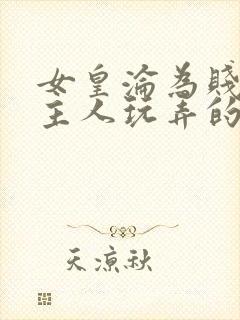 女皇淪為賤
主人玩弄的
天涼秋